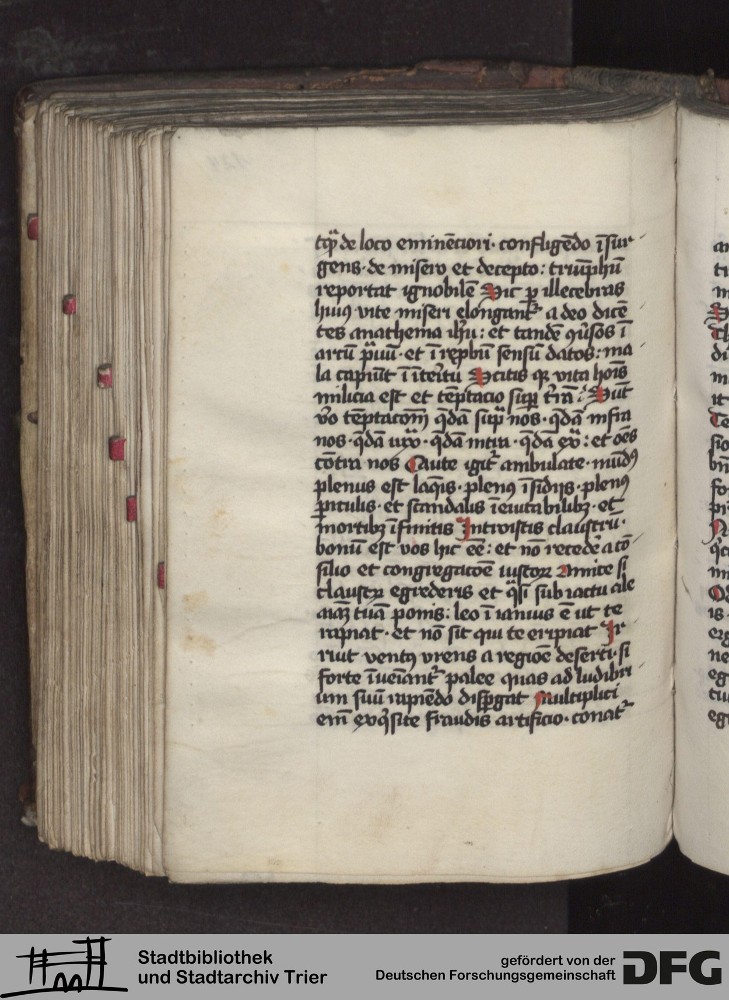 tqͣ de loco eminēciori· confligēdo īsur
gens· de misero et decepto: triūphū
reportat ignobilē Hic ꝑ illecebras
huiꝰ vite miseri elongant᷑ a deo dicē
tes anathema ihū: et tandē
artū et ī reprobū sensū datos: ma
la capiūt ī īteritu Scitis qꝫ vita hoīs
milicia est et tēptacio suꝑ t̄rā: Sūt
v̊o tēptacōm̄ q̄dā supͣ nos· q̄dā infra
nos· q̄dā iuxͣ· q̄dā intra· q̄dā exͣ: et oēs
cōtra nos Caute igit᷑ ambulate· mūdꝰ
plenus est laq̄is· plenꝰ īsidijs· plenꝰ
ꝑiculis· et scandalis īeuitabilibꝫ· et
mortibꝫ īfinitis Introistis claustrū·
bonū est vos hic eē: et nō recedē a cō
silio et congregacōe iustoꝝ Amice si
claustꝝ egrederis et q̄si sub iactu ale
aīaꝫ tuā ponis: leo ī ianuis ē ut te
rapiat· et nō sit qui te eripiat Ir
riut ventꝰ vrens a regiōe deserti· si
forte īueīant᷑ palee quas ad ludibri
um suū rapiēdo disꝑgat Multiplici
em̄ exqͥsite fraudis artificio· conat᷑
Stadtbibliothek
und Stadtarchiv Trier
gefördert von der
Deutschen Forschungsgemeinschaft
DFG